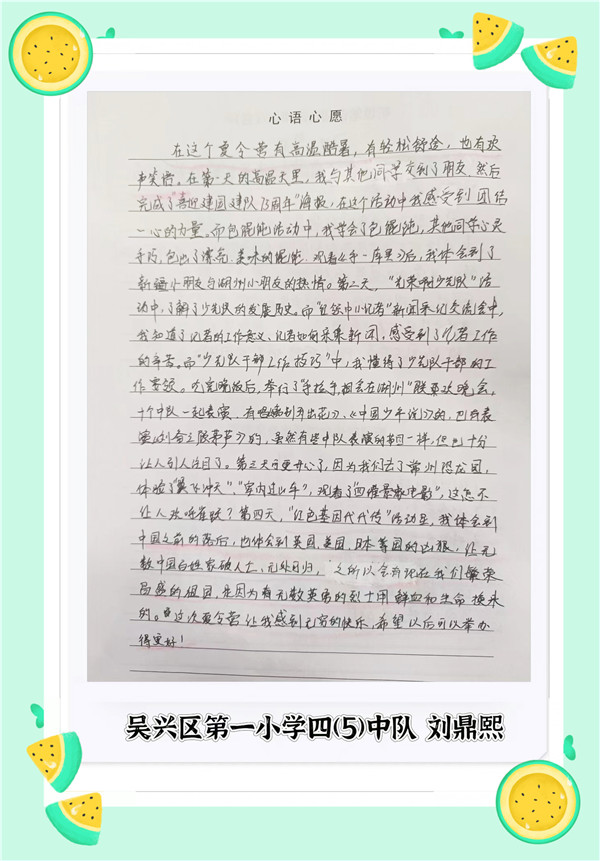 心语心愿
在这个夏令营有高温酷暑,有轻松舒途,也有欢
声笑语。在第一天的高温天里,我与其他同学交到了朋友,然后
完成了"喜迎建国建队75周年"海报,在这个活动中我感受到团结
一心的力量。而包馄饨活动中,我学会了包馄饨,其他同学心灵
手巧,包出了漂亮、美味的馄饨。观看《第一库里》后,我体会到了
新疆小朋友与湖州小朋友的热情。第二天,"光荣啊少先队"活
动中,了解了少先队的发展历史。而"自然中小记者"新闻采记交流会中,
我知道了记者的工作意义、记者如何采集新闻,感受到了记者工作
的辛苦。而"少先队干部工作技巧"中,我懂得了少先队干部的工
作要领。吃完晚饭后,举行了"手拉手相会在湖州"联欢晚会,
十个中队一起表演,有唱《开出花》、《中国少年说》的,也有表
演《葫芦》的,虽然有些中队表演的节目一样,但也十分
让人引人注目了。第三天可更开心了,因为我们去了常州恐龙园,
体验了"冲天"、"室内过山车",观看了"四维电影",这怎不
让人欢呼雀跃?第四天,"红色基因代代传"活动里,我体会到
中国之前的落后,也体会到英国、美国、日本等国的凶狠,让无
数中国百姓家破人亡、无处可归,之所以会有现在我们繁荣
昌盛的祖国,是因为有无数英勇的烈士用鲜血和生命换来
的。这次夏令营让我感到无穷的快乐,希望以后可以举办
得更好!
吴兴区第一小学四(5)中队 刘鼎熙